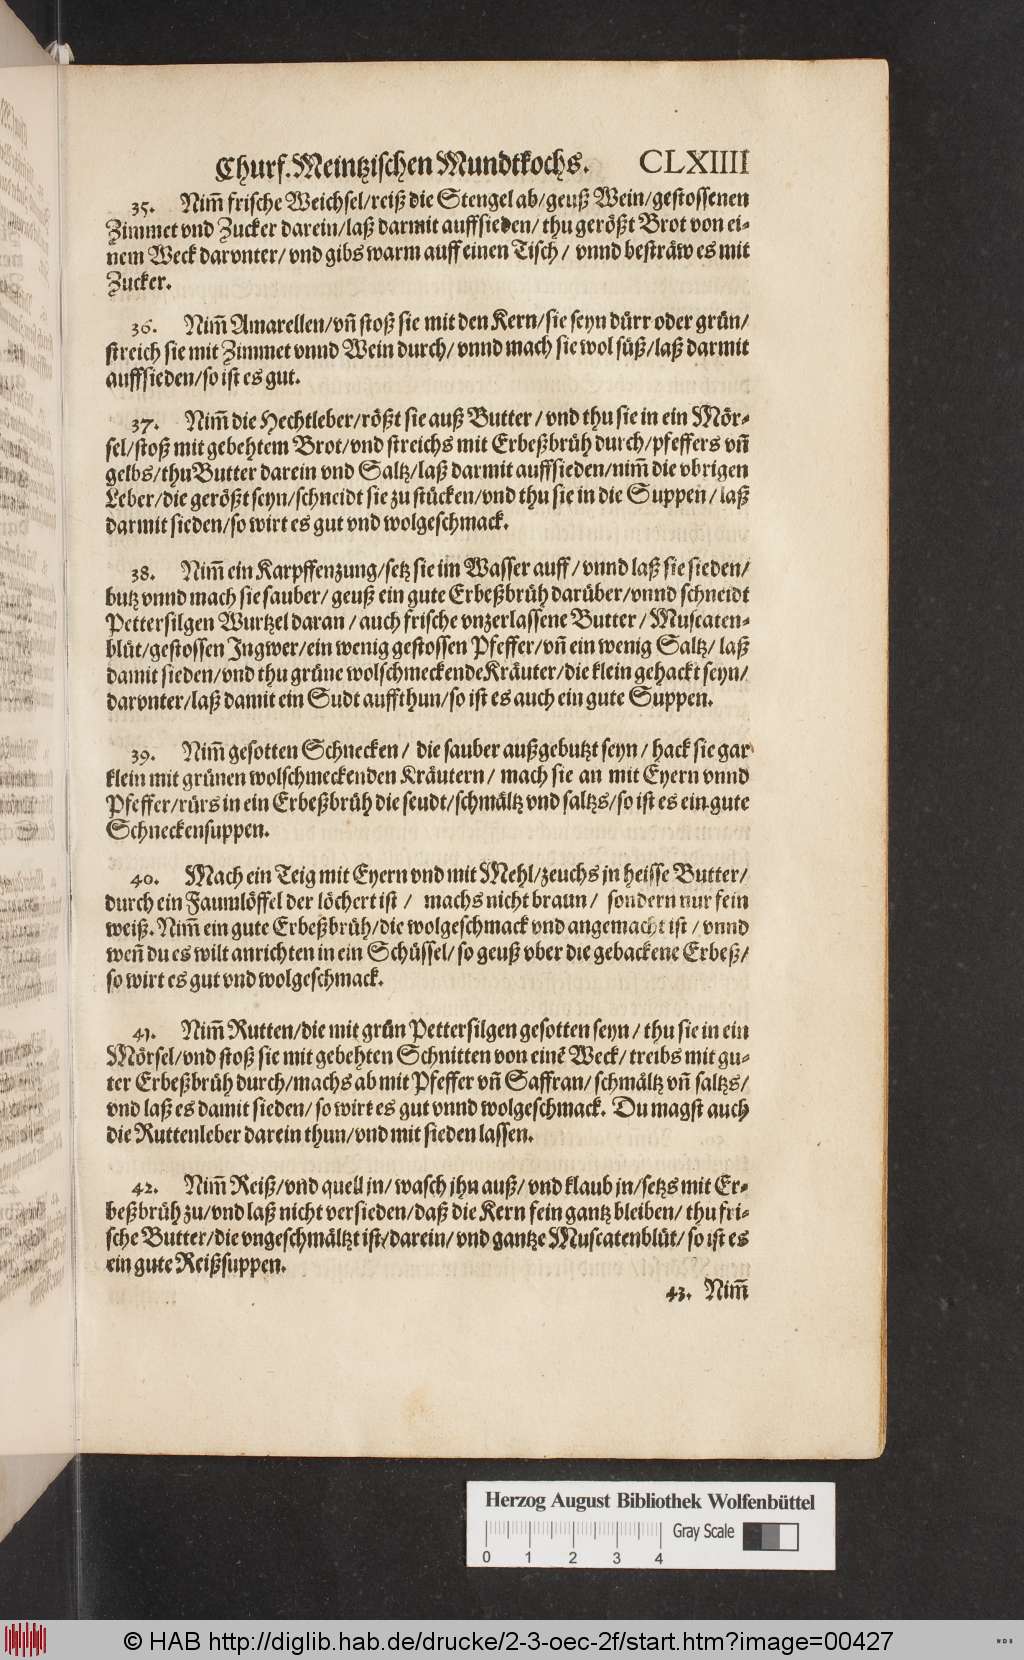 Churf. Meintzischen Mundtkochs. CLXIIII
35. Nim̃ frische Weichsel/reiß die Stengel ab/geuß Wein/gestossenen
Zimmet vnd Zucker darein/laß darmit auffsieden/thu gerößt Brot von ei-
nem Weck darvnter/vnd gibs warm auff einen Tisch/vnnd besträw es mit
Zucker.
36. Nim̃ Amarellen/vñ stoß sie mit den Kern/sie seyn dürr oder grün/
streich sie mit Zimmet vnnd Wein durch/vnnd mach sie wol süß/laß darmit
auffsieden/so ist es gut.
37. Nim̃ die Hechtleber/rößt sie auß Butter/vnd thu sie in ein Mör-
sel/stoß mit gebehtem Brot/vnd streichs mit Erbeßbrüh durch/pfeffers vñ
gelbs/thu Butter darein vnd Saltz/laß darmit auffsieden/nim̃ die vbrigen
Leber/die geröß seyn/schneidt sie zu stücken/vnd thu sie in die Suppen/laß
darmit sieden/so wirt es gut vnd wolgeschmack.
38. Nim̃ ein Karpffenzung/setz sie im Wasser auff/vnnd laß sie sieden/
butz vnnd mach sie sauber/geuß ein gute Erbeßbrüh darüber/vnnd schneidt
Pettersilgen Wurtzel daran/auch frische vnzerlassene Butter/Muscaten-
blüt/gestossen Ingwer/ein wenig gestossen Pfeffer/vñ ein wenig Saltz/laß
damit sieden/vnd thu grüne wolschmeckende Kräuter/die klein gehackt seyn/
darvnter/laß damit ein Sudt auffthun/so ist es auch ein gute Suppen.
39. Nim̃ gesotten Schnecken/die sauber außgebutzt seyn/hack sie gar
klein mit grünen wolschmeckenden Kräutern/mach sie an mit Eyern vnnd
Pfeffer/rürs in ein Erbeßbrüh die seudt/schmältz vnd saltzs/so ist es ein gute
Schneckensuppen.
40. Mach ein Teig mit Eyern vnd mit Mehl/zeuchs in heisse Butter/
durch ein Faumlöffel der löchert ist/machs nicht braun/sondern nur fein
weiß. Nim̃ ein gute Erbeßbrüh/die wolgeschmack vnd angemacht ist/vnnd
weñ du es wilt anrichten in ein Schüssel/so geuß vber die gebackene Erbeß/
so wirt es gut vnd wolgeschmack.
41. Nim̃ Rutten/die mit grün Pettersilgen gesotten seyn/thu sie in ein
Mörsel/vnd stoß sie mit gebehten Schnitten von einẽ Weck/treibs mit gu-
ter Erbeßbrüh durch/machs ab mit Pfeffer vñ Saffran/schmältz vñ saltzs/
vnd laß es damit sieden/so wirt es gut vnnd wolgeschmack. Du magst auch
die Ruttenleber darein thun/vnd mit sieden lassen.
42. Nim̃ Reiß/vnd quell in/wasch jhn auß/vnd klaub in/setzs mit Er-
beßbrüh zu/vnd laß nicht versieden/daß die Kern fein gantz bleiben/thu fri-
sche Butter/die vngeschmältzt ist/darein/vnd gantze Muscatenblüt/so ist es
ein gute Reißsuppen.
43. Nim̃
Herzog August Bibliothek Wolfenbüttel
Gray Scale
0 1 2 3 4
© HAB http://diglib.hab.de/drucke/2-3-oec-2f/start.htm?image=00427